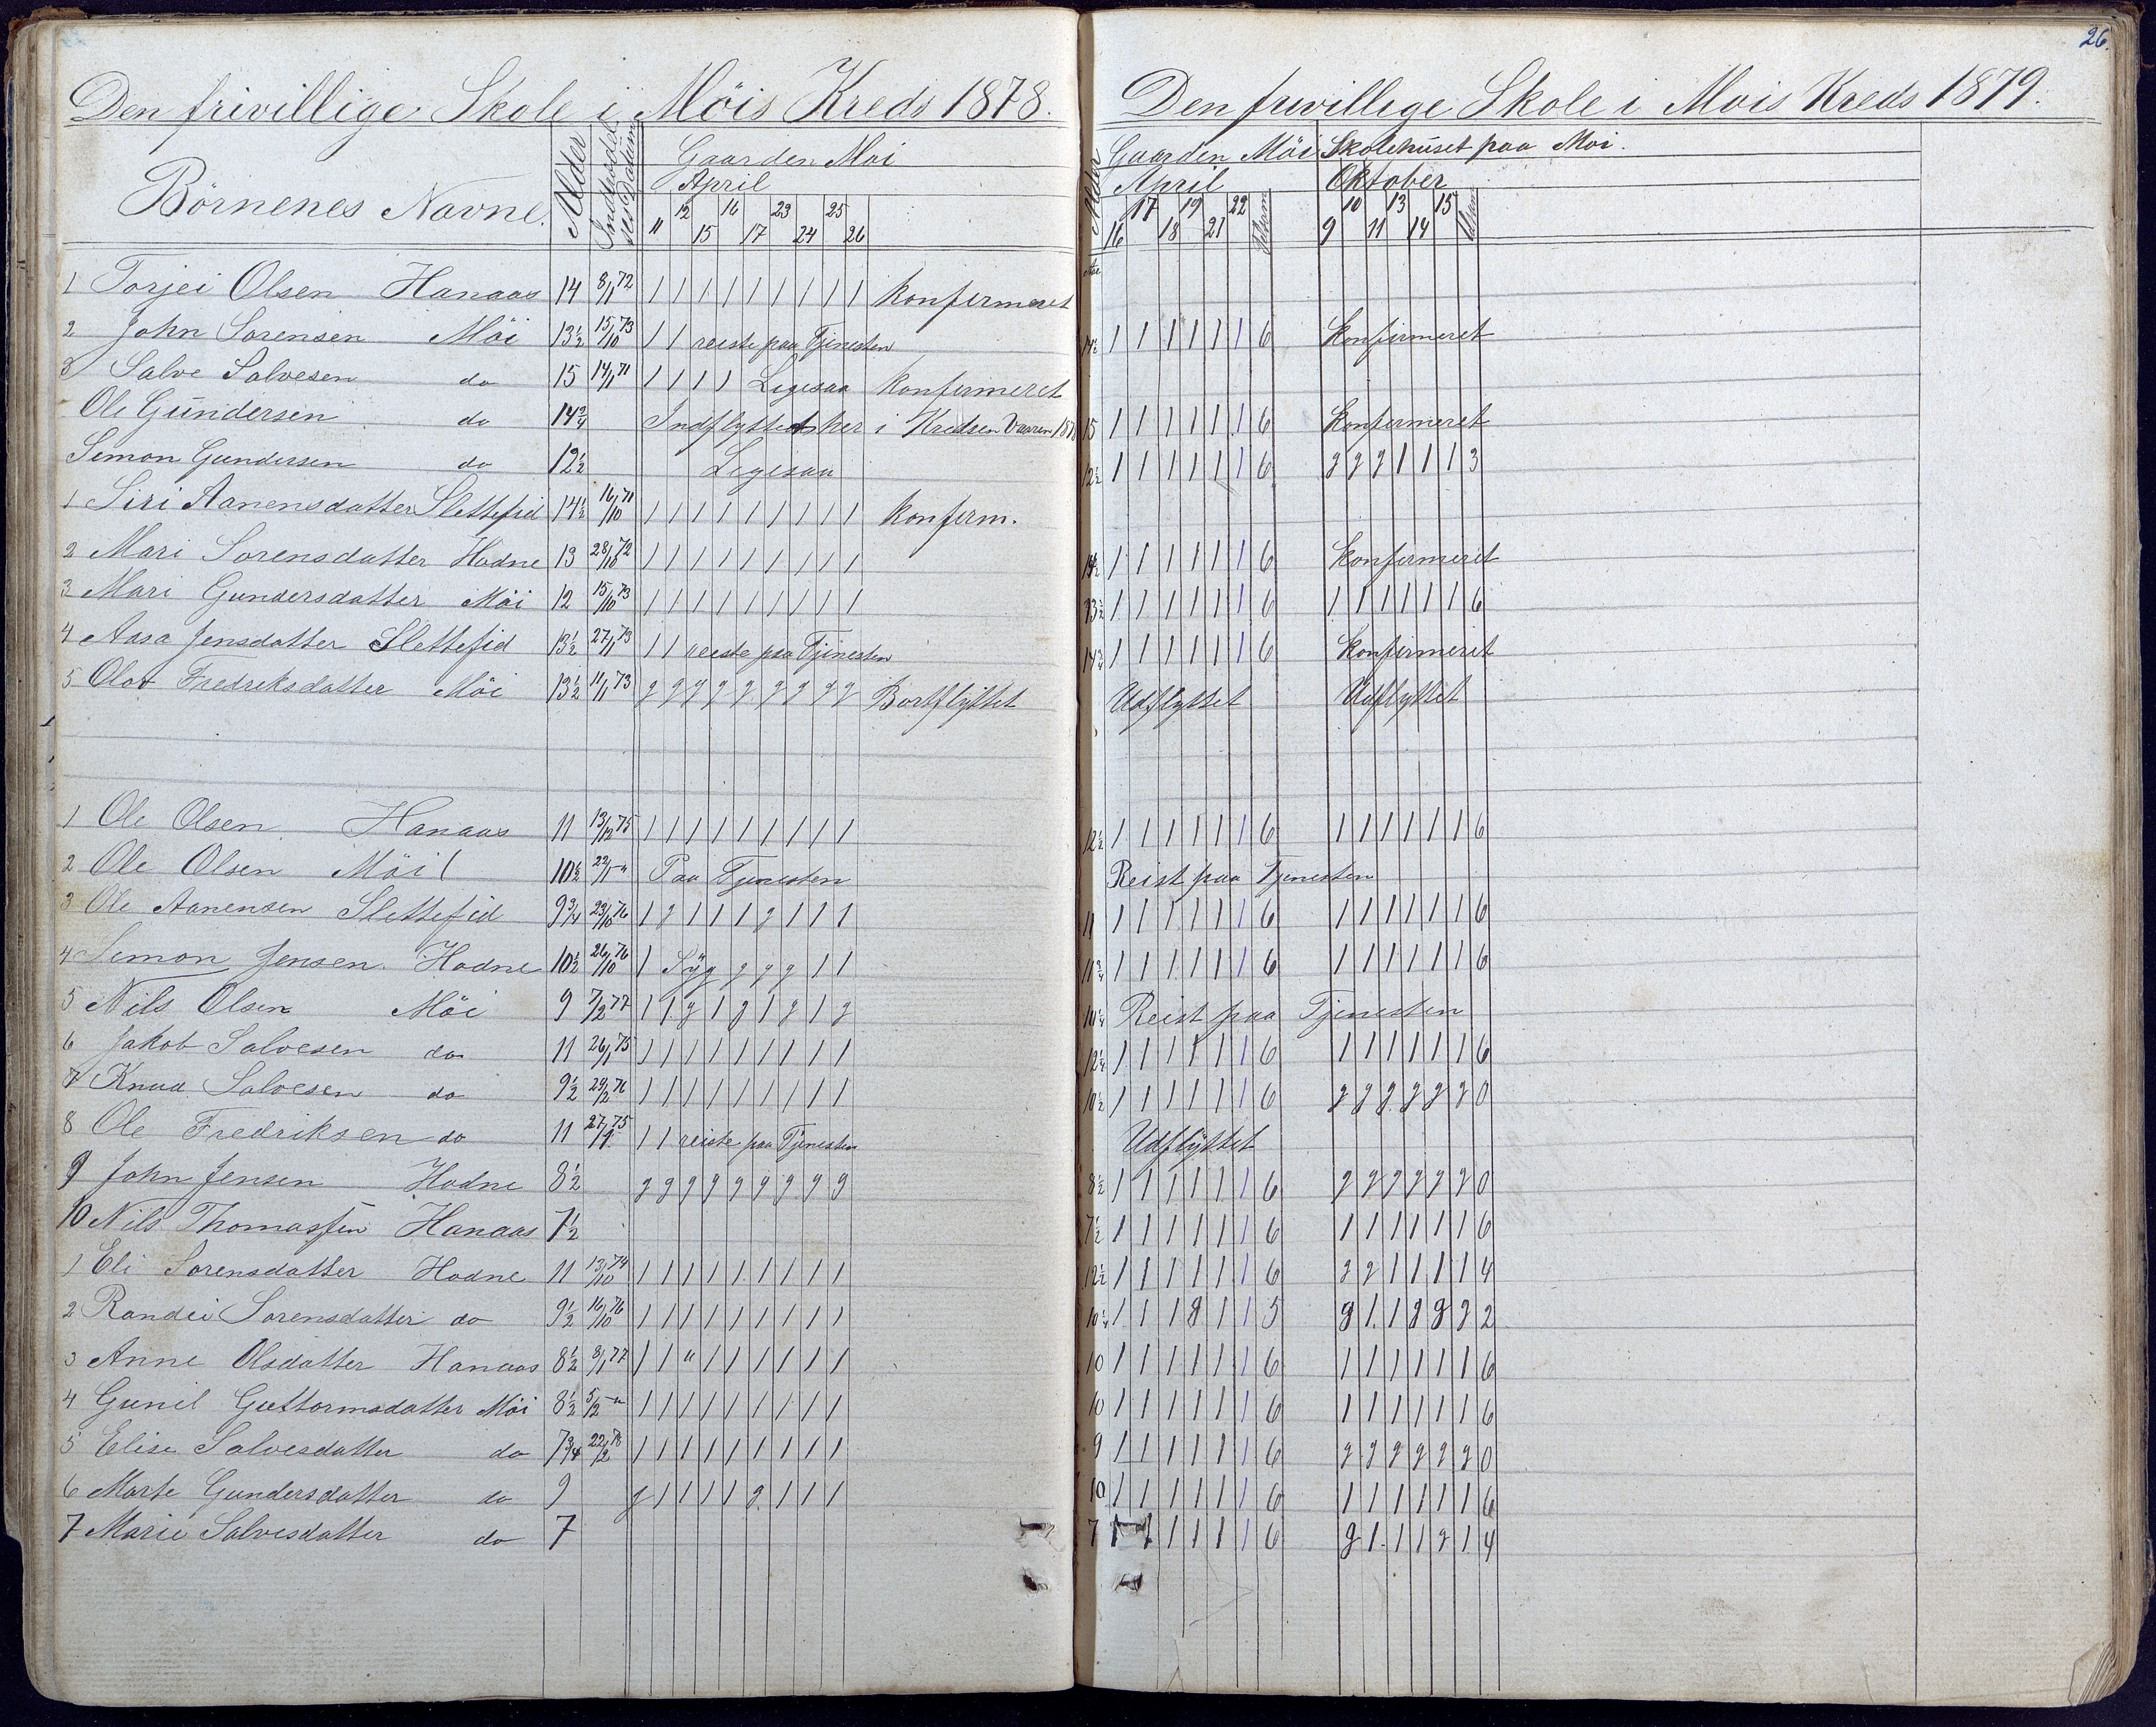 Den frivillige Skole i Möis Kreds 1878.
Börnenes Navne. Alder Gaarden Moi
April
11 12 15 16 17 23 24 25 26
1 Torjei Olsen Hanaas 14 8/1 72 1 1 1 1 1 1 1 1 1 konfirmeret
2 John Sorensen Möi 13½ 15/10 73 1 1 reiste paa Tjenesten
3 Salve Salvesen do 15 14/1 71 1 1 1 1 Ligesaa konfirmeret
Ole Gundersen do 14¾ Indflyttet her i Kredsen Vaaren 1878
Simon Gundersen do 12½ Ligesaa
1 Siri Aanensdatter Slettefid 14½ 16/10 71 1 1 1 1 1 1 1 1 1 konferm.
2 Mari Sorensdatter Hodne 13 28/10 72 1 1 1 1 1 1 1 1 1
3 Mari Gundersdatter Möi 12 15/10 73 1 1 1 1 1 1 1 1 1
4 Aasa Jensdatter Slettefid 13½ 27/1 73 1 1 reiste paa Tjenesten
5 Olav Fredriksdatter Möi 13½ 11/1 73 g g g g g g g g g Bortflyttet
1 Ole Olsen Hanaas 11 13/12 75 1 1 1 1 1 1 1 1 1
2 Ole Olsen Möi 10½ Paa Tjenesten
3 Ole Aanensen Slettefid 9¾ 23/10 76 1 g 1 1 1 g 1 1 1
4 Simon Jensen Hodne 10½ 26/10 76 1 Syg g g g 1 1
5 Nils Olsen Möi 9 7/2 77 1 1 g 1 g 1 g 1 g
6 Jakob Salvesen do 11 26/1 75 1 1 1 1 1 1 1 1 1
7 Knud Salvesen do 9½ 29/2 76 1 1 1 1 1 1 1 1 1
8 Ole Fredriksen do 11 1 1 reiste paa Tjenesten
9 John Jensen Hodne 8½ g g g g g g g g g
10 Nils Thomassen Hanaas 7½
1 Eli Sorensdatter Hodne 11 13/10 74 1 1 1 1 1 1 1 1 1
2 Randei Sorensdatter do 9½ 16/10 76 1 1 1 1 1 1 1 1 1
3 Anne Olsdatter Hanaas 8½ 8/1 77 1 1 " 1 1 1 1 1 1
4 Gunil Guttormsdatter Möi 8½ 5/2 - " 1 1 1 1 1 1 1 1 1
5 Elise Salvesdatter do 7¾ 22/2 78 1 1 1 1 1 1 1 1 1
6 Marte Gundersdatter do 9 g 1 1 1 1 g 1 1 1
7 Marie Salvesdatter do 7
26.
Den frivillege Skole i Mois Kreds 1879.
Alder Gaarden Möi Skolehuset paa Moi.
April Oktober
16 17 18 19 21 22 9 10 11 13 14 15
14½ 1 1 1 1 1 1 6 Konfirmeret
15 1 1 1 1 1 1 6 Konfirmeret
12½ 1 1 1 1 1 1 6 g g g 1 1 1 3
1 1 1 1 1 1 6 Konfirmeret
13½ 1 1 1 1 1 1 6 1 1 1 1 1 1 6
14¾ 1 1 1 1 1 1 6 Konfirmeret
Udflyttet Udflyttet
12½ 1 1 1 1 1 1 6 1 1 1 1 1 1 6
Reist paa Tjenesten
11 1 1 1 1 1 1 6 1 1 1 1 1 1 6
11¾ 1 1 1 1 1 1 6 1 1 1 1 1 1 6
10¼ Reist paa Tjenesten
12¼ 1 1 1 1 1 1 6 1 1 1 1 1 1 6
10½ 1 1 1 1 1 1 6 g g g g g g 0
Udflyttet
8½ 1 1 1 1 1 1 6 g g g g g g 0
7½ 1 1 1 1 1 1 6 1 1 1 1 1 1 6
12½ 1 1 1 1 1 1 6 g g 1 1 1 1 4
10¼ 1 1 1 g 1 1 5 g 1 1 g g g 2
10 1 1 1 1 1 1 6 1 1 1 1 1 1 6
10 1 1 1 1 1 1 6 1 1 1 1 1 1 6
9 1 1 1 1 1 1 6 g g g g g g 0
10 1 1 1 1 1 1 6 1 1 1 1 1 1 6
7 1 1 1 1 1 1 6 g 1 1 1 g 1 4